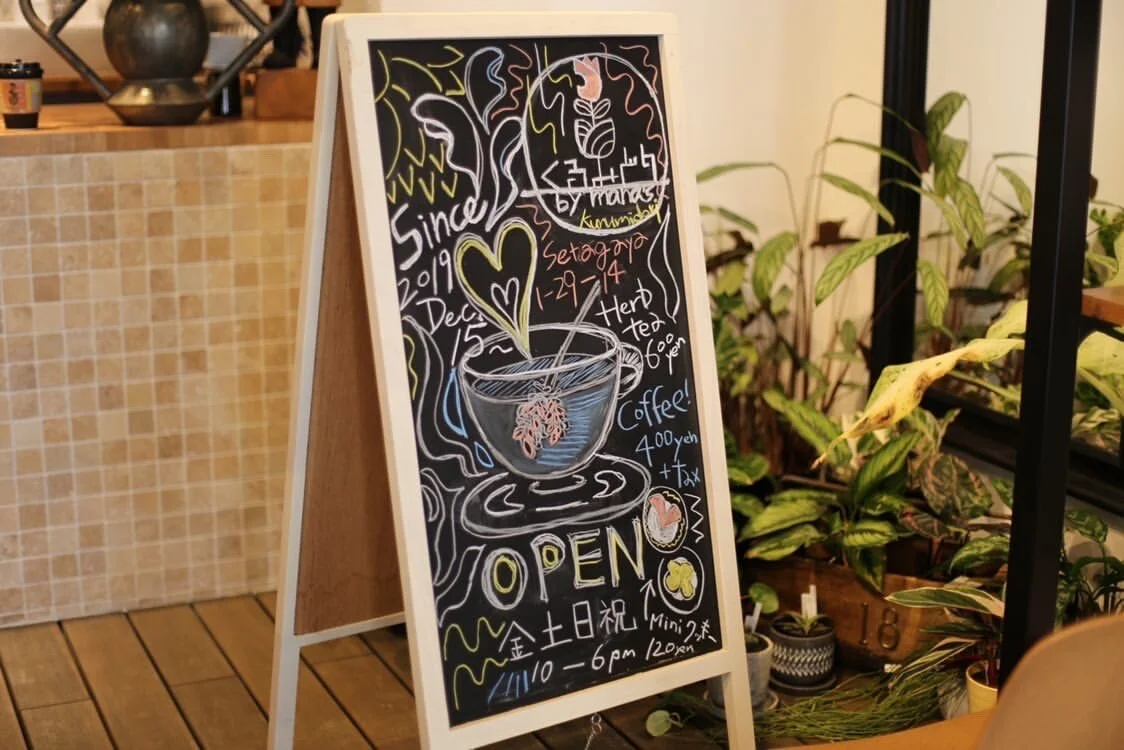 by mana's.
Kurumido
Since
2019
Dec.
15~
Setagaya
1-29-14
Herb
tea
600yen
Coffee!
400yen
+tax
OPEN
金土日祝
10-6pm
Mini
120yen
18